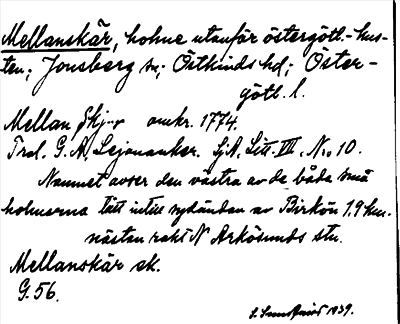 Mellanskär, holme utanför östergötl.-kus-
ten; Jonsberg sn; Östkinds hd; Öster-
götl. l.
Mellan Skj-r omkr. 1774.
Trol. G. A. Lejonanker. SjA, Litt. VII, No 10.
Namnet avser den västra av de båda små
holmarna tätt intill sydändan av Birkön 1,9 km.
nästan rakt N Arkösunds stn.
Mellanskär ek.
G. 56.
1939.